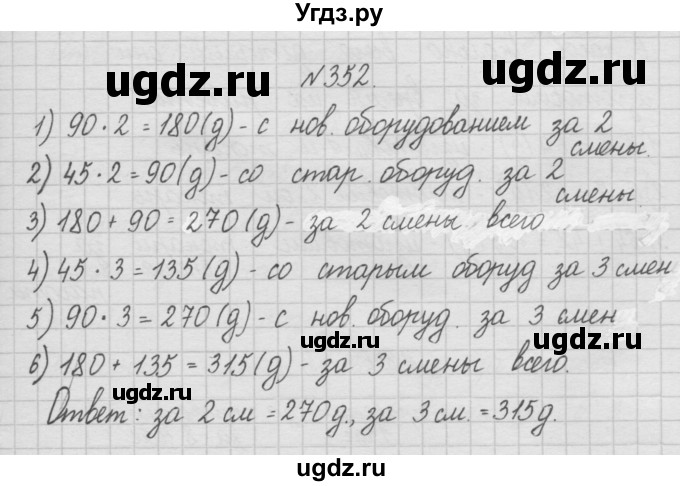 Угдз.ру
ugdz.ru
ugdz.ru
N352.
1) 90·2=180(д)-с нов. оборудованием за 2 смены.
2) 45·2=90(д)-со стар. оборуд. за 2 смены.
3) 180+90=270(д)-за 2 смены всего
4) 45·3=135(д)-со старым оборуд за 3 смен
5) 90·3=270(д)-с нов. оборуд. за 3 смен
ugdz.ru
ugdz.ru
6) 180+135=315(д)-за 3 смены всего.
ugdz.ru
Ответ: за 2 см=270д., за 3 см.=315д.
ugdz.ru